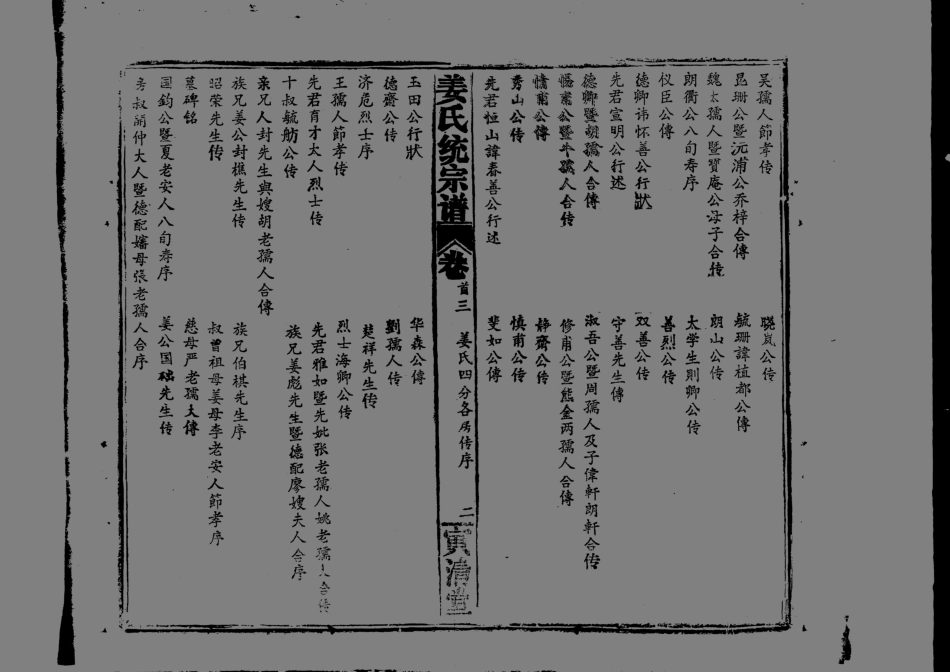 吴孺人節孝传
晓岚公传
昆珊公暨沅浦公乔梓合傳
毓珊諱植都公傳
魏太孺人暨寶庵公母子合传
朗山公传
朗衢公八旬寿序
太学生則卿公传
仪臣公傳
善烈公传
德卿讳怀善公行狀
双善公传
先君宣明公行述
守善先生傳
德卿暨胡孺人合傳
淑吾公暨周孺人及子偉軒朗軒合传
愠甫公暨牛孺人合传
修甫公暨熊金两孺人合傳
慵甫公傳
静齋公传
秀山公传
慎甫公传
先君恒山諱春善公行述
斐如公傳
姜氏统宗谱 卷首三 姜氏四分各房传序 二 寅清堂
玉田公行狀
华森公傳
德齋公传
劉孺人传
济危烈士序
楚祥先生传
王孺人節孝传
烈士海卿公传
先君育才大人烈士传
先君雅如暨先妣张老孺人姚老孺人合传
十叔毓舫公传
族兄姜彪先生暨德配廖嫂夫人合序
亲兄人封先生與嫂胡老孺人合傳
族兄姜公封樵先生传
族兄伯棋先生序
昭荣先生传
叔曾祖母姜母李老安人節孝序
墓碑铭
慈母严老孺人傳
国鈞公暨夏老安人八旬寿序
姜公国础先生传
房叔開仲大人暨德配嬸母張老孺人合序